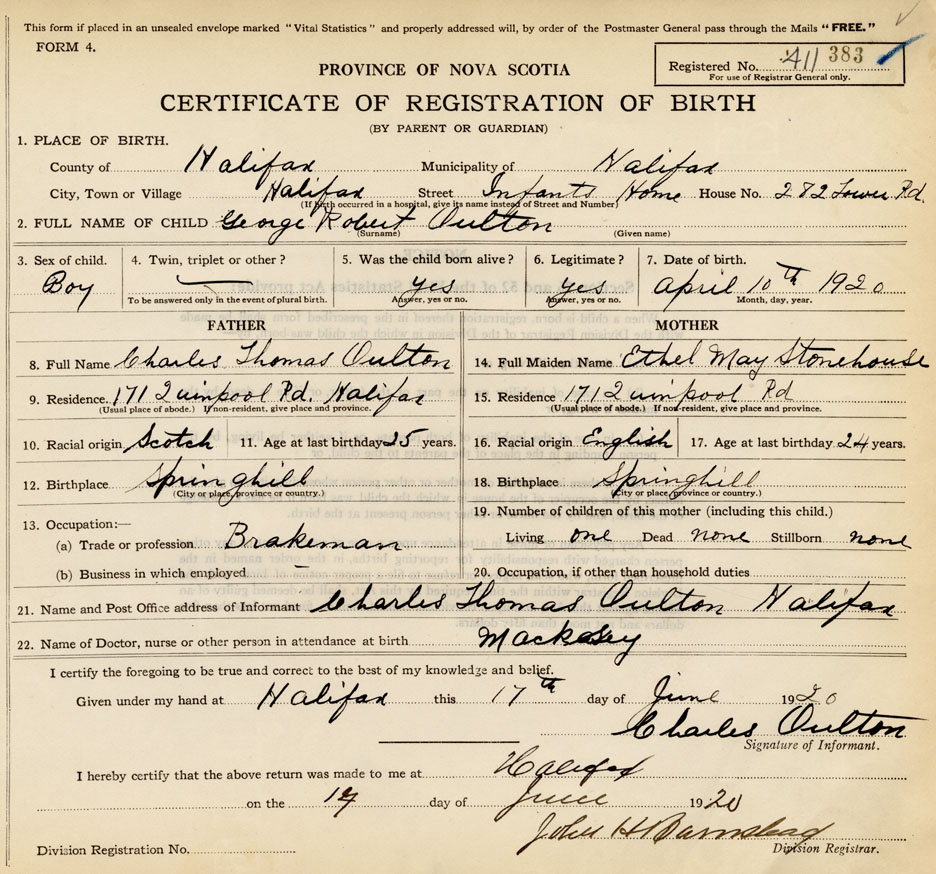 This form if placed in an unsealed envelope marked "Vital Statistics" and properly addressed will, by order of the Postmaster General pass through the Mails "FREE."
FORM 4.
Registered No. 411 383
For use of Registrar General only.
PROVINCE OF NOVA SCOTIA
CERTIFICATE OF REGISTRATION OF BIRTH
(BY PARENT OR GUARDIAN)
1. PLACE OF BIRTH.
County of Halifax Municipality of Halifax
City, Town or Village Halifax Street Infants Home House No. 282 Tower Rd.
(If birth occurred in a hospital, give its name instead of Street and Number)
2. FULL NAME OF CHILD George Robert Oulton
(Surname) (Given name)
3. Sex of child. 4. Twin, triplet or other? 5. Was the child born alive? 6. Legitimate? 7. Date of birth.
Boy yes yes April 10th 1920
To be answered only in the event of plural birth. Answer, yes or no. Answer, yes or no. Month, day, year.
FATHER MOTHER
8. Full Name Charles Thomas Oulton 14. Full Maiden Name Ethel May Stonehouse
9. Residence. 171 Quinpool Rd. Halifax 15. Residence 171 Quinpool Rd
(Usual place of abode.) If non-resident, give place and province. (Usual place of abode.) If non-resident, give place and province.
10. Racial origin Scotch 11. Age at last birthday 25 years. 16. Racial origin English 17. Age at last birthday 24 years.
12. Birthplace Springhill 18. Birthplace Springhill
(City or place, province or country.) (City or place, province or country.)
13. Occupation:— 19. Number of children of this mother (including this child.)
(a) Trade or profession. Brakeman Living one Dead none Stillborn none
(b) Business in which employed – 20. Occupation, if other than household duties
21. Name and Post Office address of Informant Charles Thomas Oulton Halifax
22. Name of Doctor, nurse or other person in attendance at birth Mackasey
I certify the foregoing to be true and correct to the best of my knowledge and belief.
Given under my hand at Halifax this 17th day of June 1920
Charles Oulton
Signature of Informant.
I hereby certify that the above return was made to me at Halifax
on the 17 day of June 1920
John H Barnstead
Division Registrar.
Division Registration No.